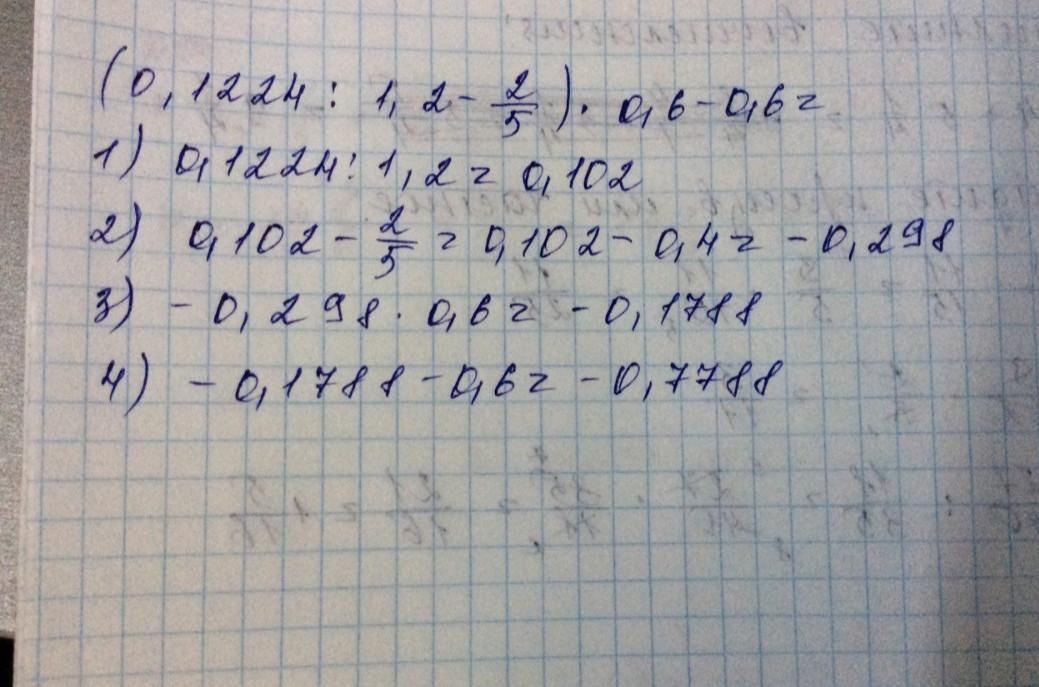 (0,1224 : 1,2 - 2/5) · 0,6 - 0,6 =
1) 0,1224 : 1,2 = 0,102
2) 0,102 - 2/5 = 0,102 - 0,4 = - 0,298
3) - 0,298 · 0,6 = - 0,1788
4) - 0,1788 - 0,6 = - 0,7788